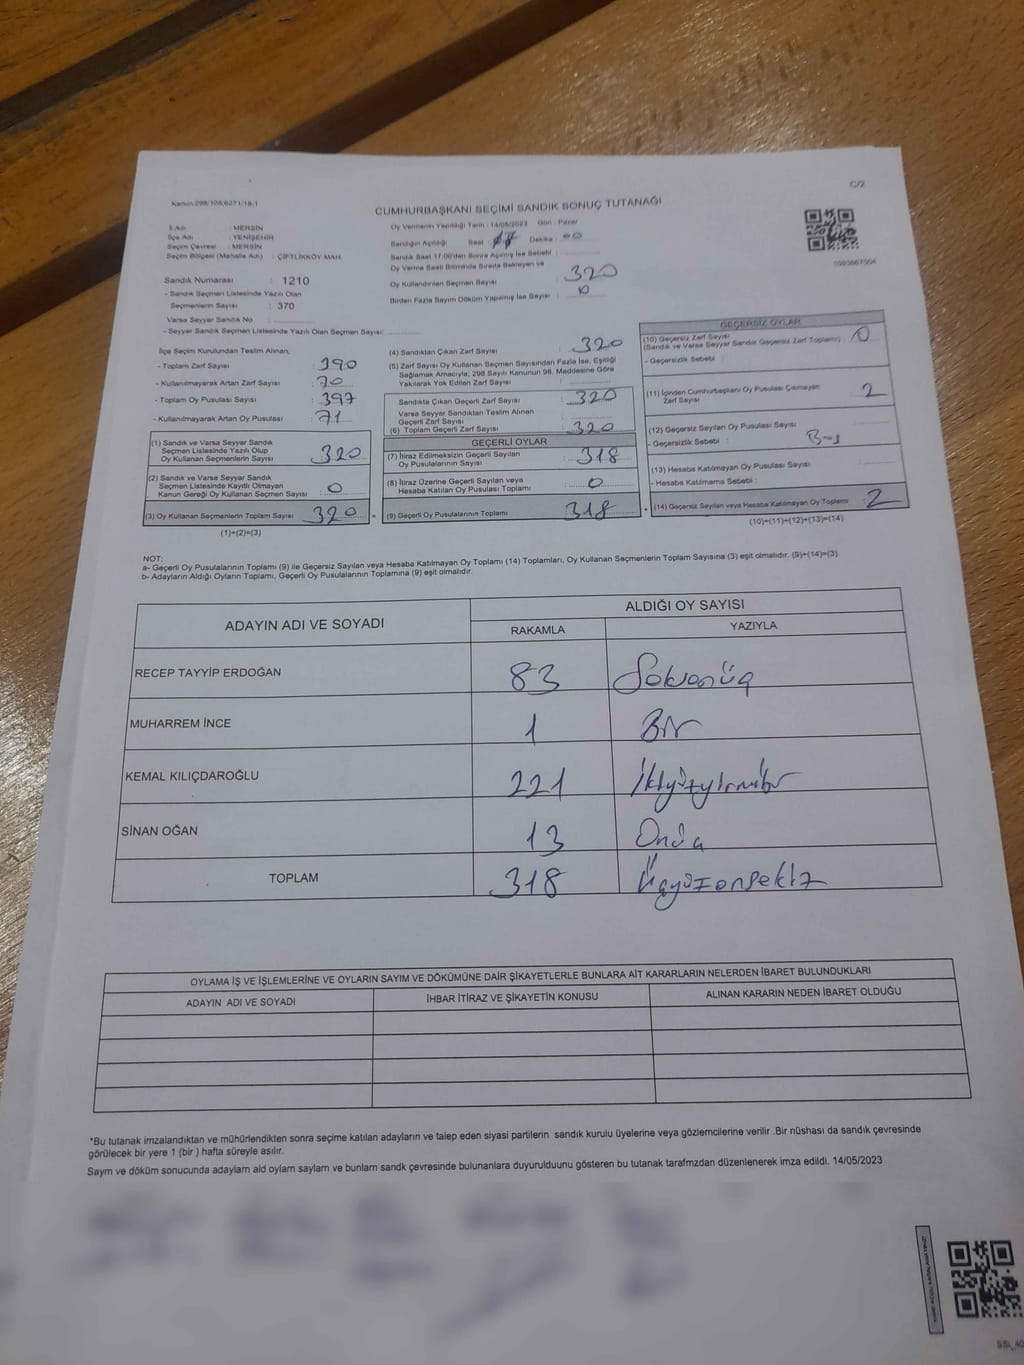 C/2
Kanun:298/105,6271/18-1
CUMHURBAŞKANI SEÇİMİ SANDIK SONUÇ TUTANAĞI
İl Adı : MERSİN
İlçe Adı : YENİŞEHİR
Seçim Çevresi : MERSİN
Seçim Bölgesi (Mahalle Adı) : ÇİFTLİKKÖY MAH.
Oy Vermenin Yapıldığı Tarih : 14/05/2023 Gün : Pazar
Sandığın Açıldığı Saat : 17 Dakika : 00
Sandık Saat 17:00'den Sonra Açılmış İse Sebebi :
Oy Verme Saati Bitiminde Sırada Bekleyen ve
Oy Kullandırılan Seçmen Sayısı : 320
Birden Fazla Sayım Döküm Yapılmış İse Sayısı : 0
Sandık Numarası : 1210
- Sandık Seçmen Listesinde Yazılı Olan
Seçmenlerin Sayısı : 370
Varsa Seyyar Sandık No :
- Seyyar Sandık Seçmen Listesinde Yazılı Olan Seçmen Sayısı:
İlçe Seçim Kurulundan Teslim Alınan,
- Toplam Zarf Sayısı : 390
- Kullanılmayarak Artan Zarf Sayısı : 70
- Toplam Oy Pusulası Sayısı : 397
- Kullanılmayarak Artan Oy Pusulası : 71
(1) Sandık ve Varsa Seyyar Sandık
Seçmen Listesinde Yazılı Olup
Oy Kullanan Seçmenlerin Sayısı : 320
(2) Sandık ve Varsa Seyyar Sandık
Seçmen Listesinde Kayıtlı Olmayan
Kanun Gereği Oy Kullanan Seçmen Sayısı : 0
(3) Oy Kullanan Seçmenlerin Toplam Sayısı : 320
(1)+(2)=(3)
(4) Sandıktan Çıkan Zarf Sayısı : 320
(5) Zarf Sayısı Oy Kullanan Seçmen Sayısından Fazla İse, Eşitliği
Sağlamak Amacıyla; 298 Sayılı Kanunun 98. Maddesine Göre
Yakılarak Yok Edilen Zarf Sayısı :
Sandıkta Çıkan Geçerli Zarf Sayısı : 320
Varsa Seyyar Sandıktan Teslim Alınan
Geçerli Zarf Sayısı :
(6) Toplam Geçerli Zarf Sayısı : 320
GEÇERLİ OYLAR
(7) İtiraz Edilmeksizin Geçerli Sayılan
Oy Pusulalarının Sayısı : 318
(8) İtiraz Üzerine Geçerli Sayılan veya
Hesaba Katılan Oy Pusulası Toplamı : 0
(9) Geçerli Oy Pusulalarının Toplamı : 318
GEÇERSİZ OYLAR
(10) Geçersiz Zarf Sayısı
(Sandık ve Varsa Seyyar Sandık Geçersiz Zarf Toplamı) : 0
- Geçersizlik Sebebi :
(11) İçinden Cumhurbaşkanı Oy Pusulası Çıkmayan
Zarf Sayısı : 2
(12) Geçersiz Sayılan Oy Pusulası Sayısı :
- Geçersizlik Sebebi :
(13) Hesaba Katılmayan Oy Pusulası Sayısı :
- Hesaba Katılmama Sebebi :
(14) Geçersiz Sayılan veya Hesaba Katılmayan Oy Toplamı : 2
(10)+(11)+(12)+(13)=(14)
NOT:
a- Geçerli Oy Pusulalarının Toplamı (9) ile Geçersiz Sayılan veya Hesaba Katılmayan Oy Toplamı (14) Toplamları, Oy Kullanan Seçmenlerin Toplam Sayısına (3) eşit olmalıdır. (9)+(14)=(3)
b- Adayların Aldığı Oyların Toplamı, Geçerli Oy Pusulalarının Toplamına (9) eşit olmalıdır.
ADAYIN ADI VE SOYADI
ALDIĞI OY SAYISI
RAKAMLA YAZIYLA
RECEP TAYYİP ERDOĞAN 83 Seksenüç
MUHARREM İNCE 1 Bir
KEMAL KILIÇDAROĞLU 221 İkiyüzyirmibir
SİNAN OĞAN 13 Onüç
TOPLAM 318 Üçyüzonsekiz
OYLAMA İŞ VE İŞLEMLERİNE VE OYLARIN SAYIM VE DÖKÜMÜNE DAİR ŞİKAYETLERLE BUNLARA AİT KARARLARIN NELERDEN İBARET BULUNDUKLARI
ADAYIN ADI VE SOYADI İHBAR İTİRAZ VE ŞİKAYETİN KONUSU ALINAN KARARIN NEDEN İBARET OLDUĞU
*Bu tutanak imzalandıktan ve mühürlendikten sonra seçime katılan adayların ve talep eden siyasi partilerin sandık kurulu üyelerine veya gözlemcilerine verilir .Bir nüshası da sandık çevresinde
görülecek bir yere 1 (bir ) hafta süreyle asılır.
Sayım ve döküm sonucunda adayların aldı oyların sayların ve bunların sandk çevresinde bulunanlara duyurulduunu gösteren bu tutanak tarafımzdan düzenlenerek imza edildi. 14/05/2023